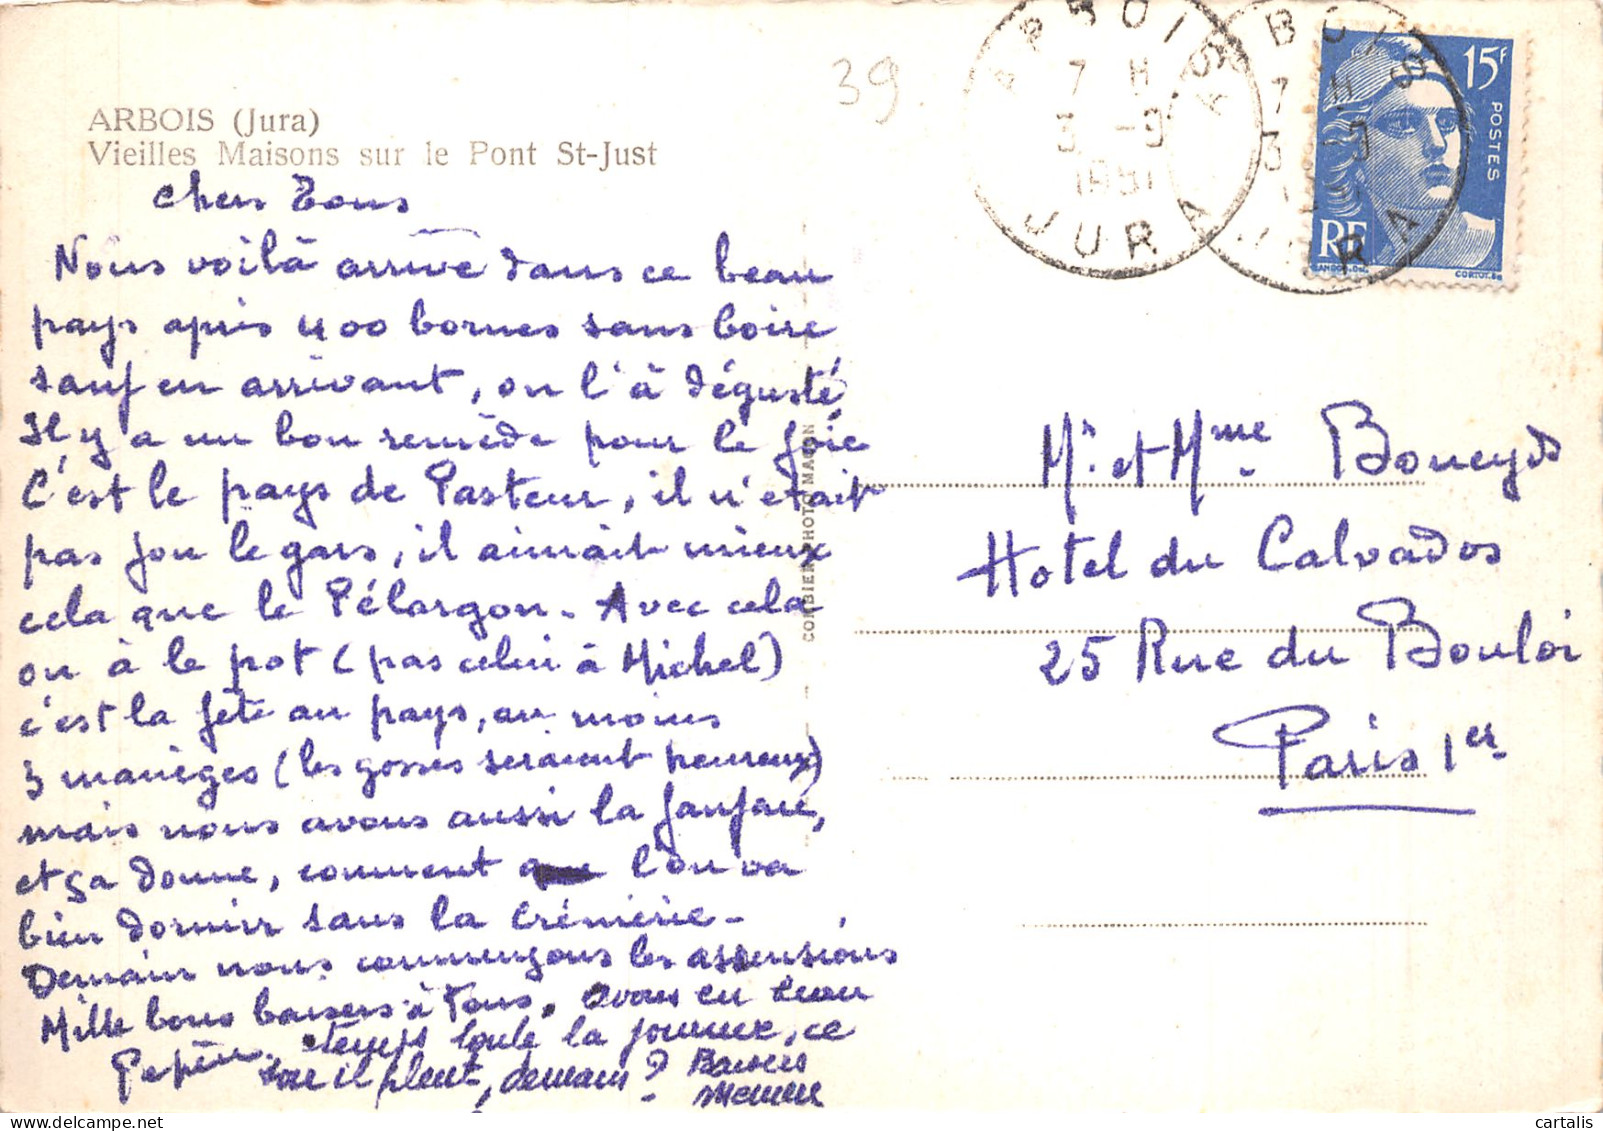 39.
ARBOIS (Jura)
Vieilles Maisons sur le Pont St-Just
ARBOIS
7 H
3 -9
1951
JURA
ARBOIS
7 H
3 -9
JURA
15F
POSTES
RF
GANDON.DEL.
CORTOT.SC
Chers Tous
Nous voilà arrivé dans ce beau
pays après 400 bornes sans boire
sauf en arrivant, on l'à dégusté
Il y a un bon remède pour le foie
C'est le pays de Pasteur, il n'était
pas fou le gars, il aimait mieux
cela que le Pélargon. Avec cela
on à le pot (pas celui à Michel)
c'est la fête au pays, au moins
3 manèges (les gosses seraient heureux)
mais nous avons aussi la fanfare,
et ça donne, comment l'on va
bien dormir sans la Crémerie -
Demain nous commençons les assensions
Mille bons baisers à Tous. avons eu beau
Pepère. temps toute la journée, ce
soir il pleut, demain? Baisers
Memere
COMBIER PHOTO MACON
Mr. et Mme Boneyds
Hotel du Calvados
25 Rue du Bouloi
Paris 1er
cartalis
delcampe.net